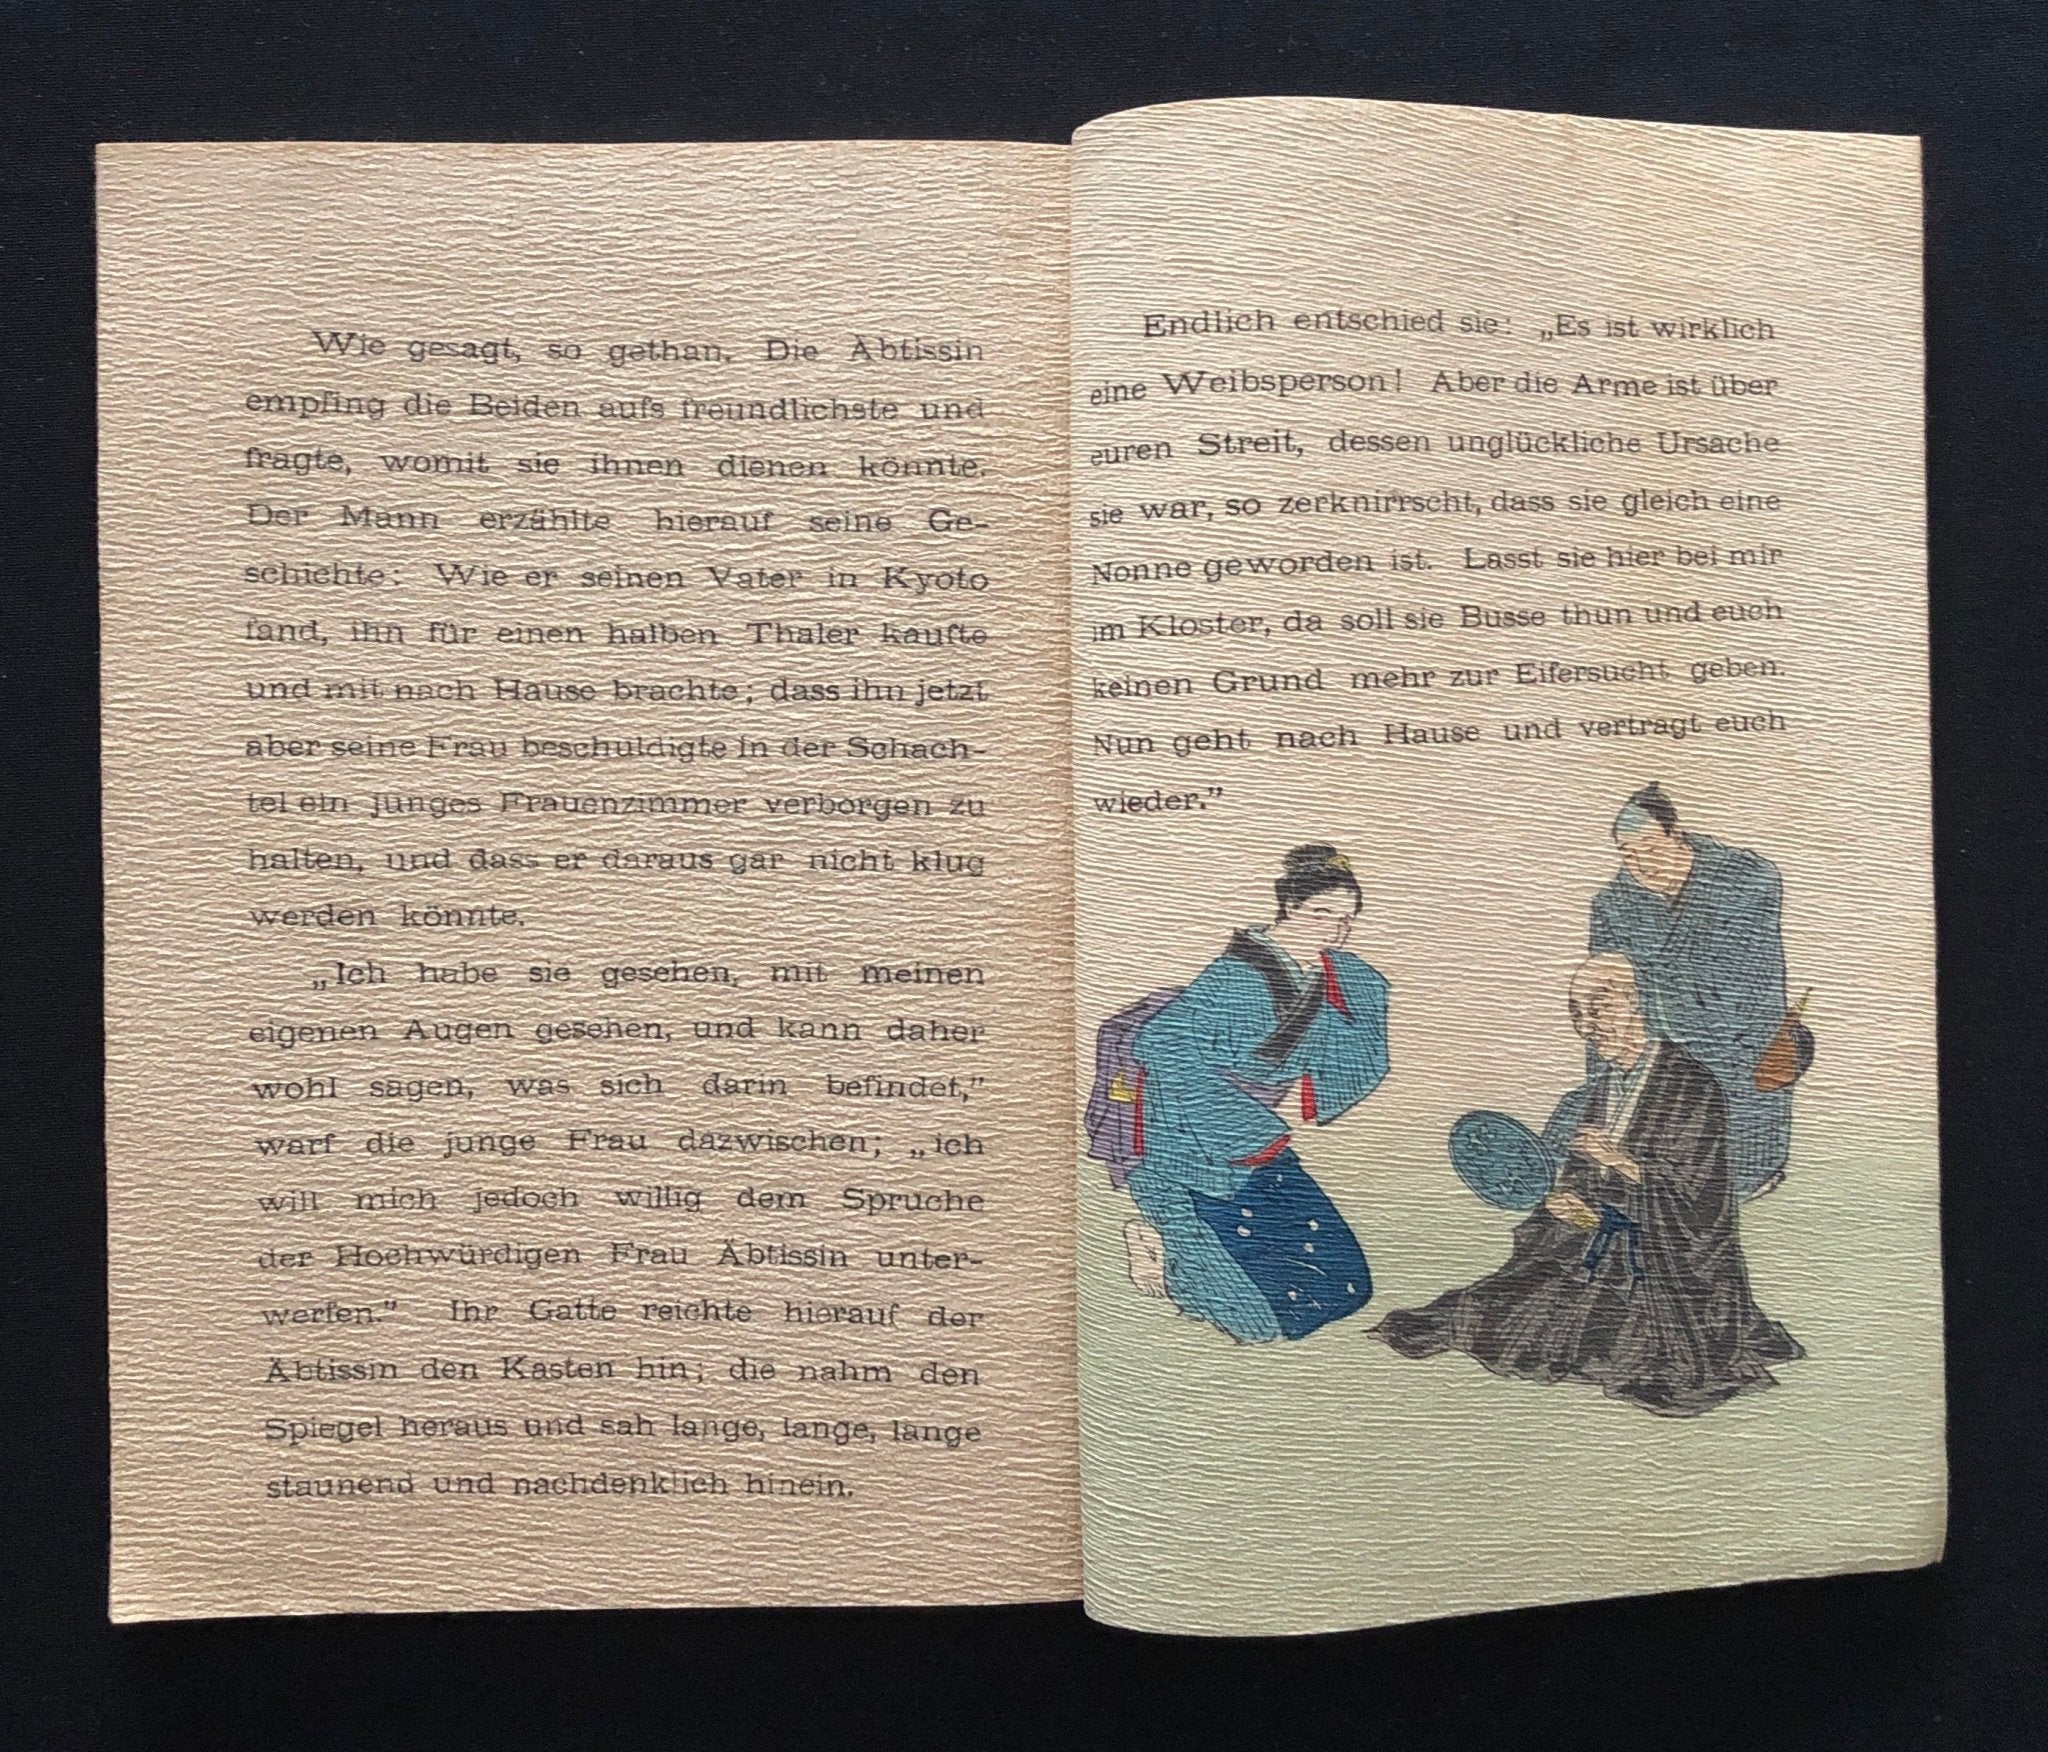 Wie gesagt, so gethan. Die Äbtissin
empfing die Beiden aufs freundlichste und
fragte, womit sie ihnen dienen könnte.
Der Mann erzählte hierauf seine Ge-
schichte: Wie er seinen Vater in Kyoto
fand, ihn für einen halben Thaler kaufte
und mit nach Hause brachte; dass ihn jetzt
aber seine Frau beschuldigte in der Schach-
tel ein junges Frauenzimmer verborgen zu
halten, und dass er daraus gar nicht klug
werden könnte.
„Ich habe sie gesehen, mit meinen
eigenen Augen gesehen, und kann daher
wohl sagen, was sich darin befindet,”
warf die junge Frau dazwischen; „ich
will mich jedoch willig dem Spruche
der Hochwürdigen Frau Äbtissin unter-
werfen.” Ihr Gatte reichte hierauf der
Äbtissin den Kasten hin; die nahm den
Spiegel heraus und sah lange, lange, lange
staunend und nachdenklich hinein.
Endlich entschied sie: „Es ist wirklich
eine Weibsperson! Aber die Arme ist über
euren Streit, dessen unglückliche Ursache
sie war, so zerknirrscht, dass sie gleich eine
Nonne geworden ist. Lasst sie hier bei mir
im Kloster, da soll sie Busse thun und euch
keinen Grund mehr zur Eifersucht geben.
Nun geht nach Hause und vertragt euch
wieder.”